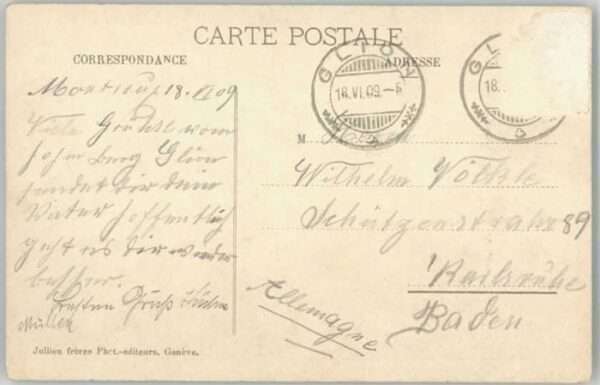 CARTE POSTALE
CORRESPONDANCE
ADRESSE
GLION
18.VI.09.
GL
18.
Montreux 18. VI 09
Viele Grüße vom
hohen Berg Glion
sendet dir dein
Vater hoffentlich
geht es dir wieder
besser.
Besten Gruß
Müller
M
Wilhelm
Schützenstraße 89
Karlsruhe
Baden
Allemagne
Jullien frères Phot.-editeurs. Genève.